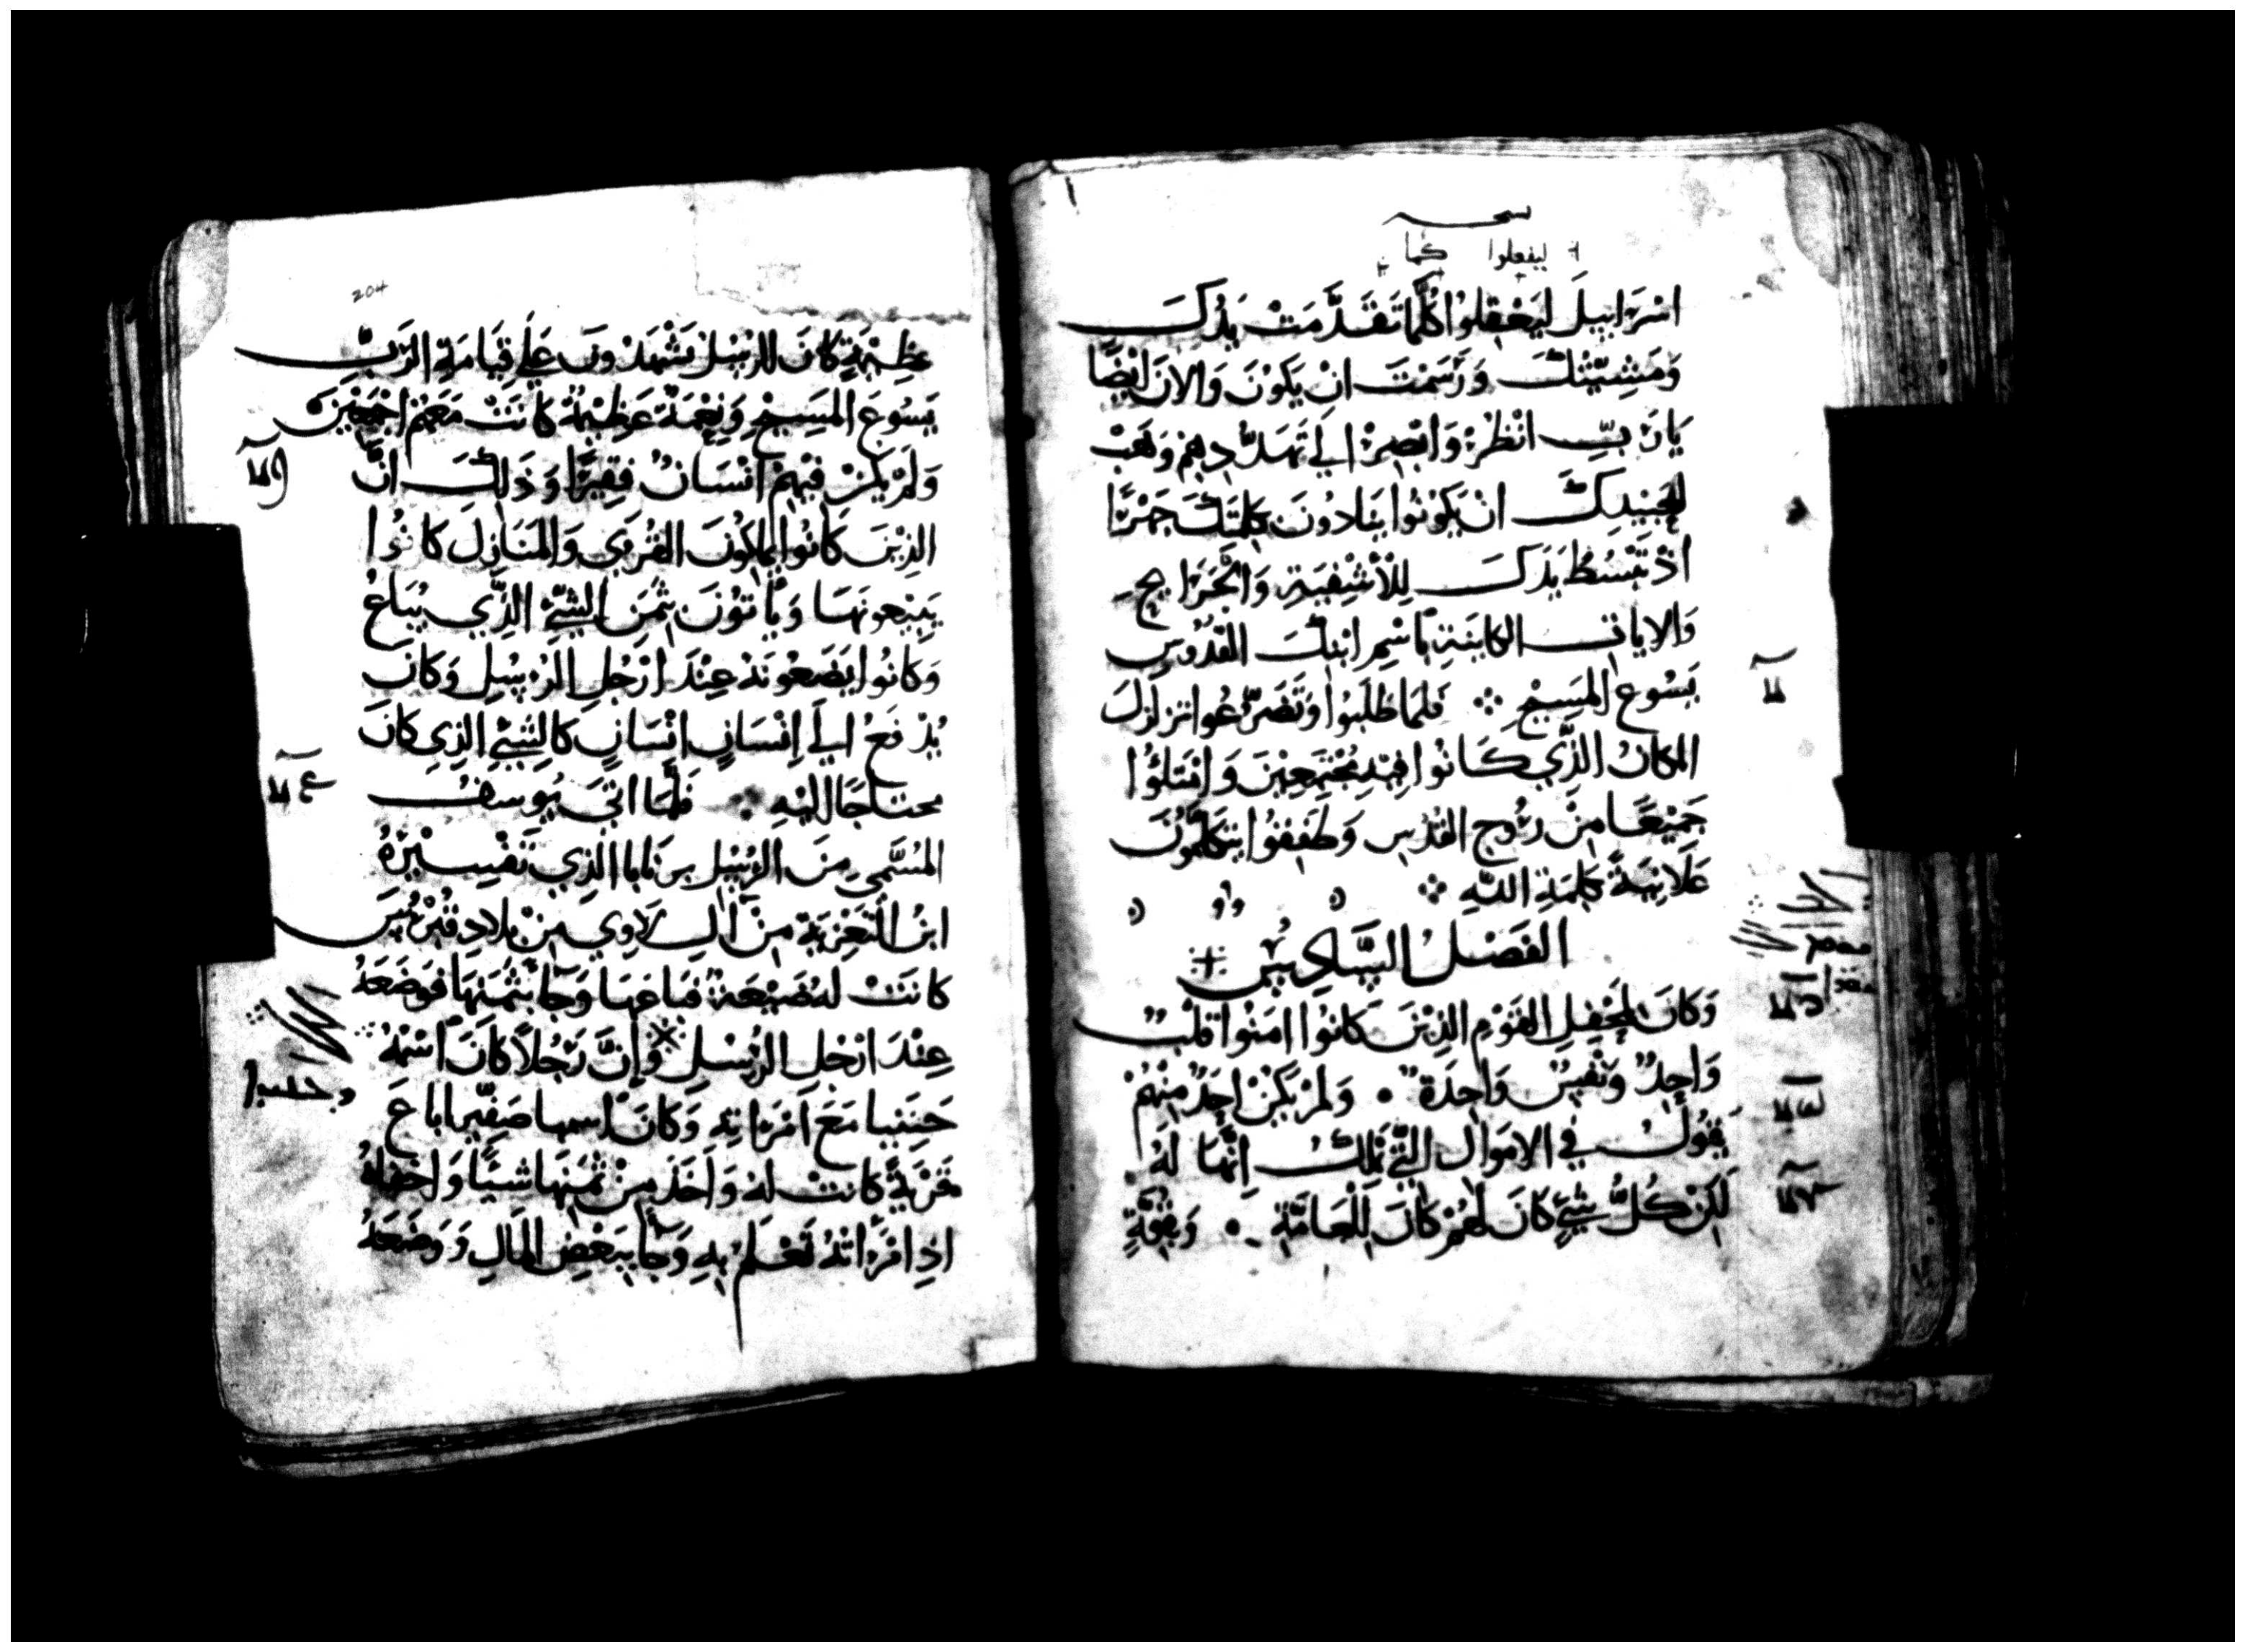 ليفعلوا كما
اسْرَاييلَ ليَفعَلوُا كُلَّمَا تَقَدَّمَتْ يَدُكَ
وَمَشِيّتْكَ وَرَسَمْتَ انْ يَكوْنَ وَالانَ ايْضًا
يَا رَبِّ انْظُرْ وَابْصِرْ الَي تَهَدُّدِهِمْ وَهَبْ
لِعَبيْدِكَ انْ يَكوُنوُا يُنَادُونَ بِكَلِمَتِكَ جَهْرًا
اذْ تَبْسُطُ يَدَكَ لِلْأَشْفِيَةِ وَالْجَرَايحِ
وَالايات الكاينَةِ بِاسْمِ ابْنِكَ القُدُّوسِ
يَسُوع المَسِيْحِ ܀ فَلمَا طَلَبُوا وَتَضَرَّعُوا تزلزَلَ
المكانُ الَّذِّي كَانوُا فِيْهِ مُجْتَمِعِيْنَ وَامْتَلَؤُا
جَمِيْعًا مِنْ رُوْحِ القُدْسِ وَطَفِقُوا يتكَلَّمُوْنَ
عَلَانِيَةً بِكَلِمَةِ اللهِ ܀
الفَصْلُ السَّادِسُ
وَكانَ لمَحْفِلِ القَوْمِ الذِيْنَ كانوُا امَنوُا قَلْبٌ
وَاحِدٌ وَنفْسٌ وَاحِدَةٌ • وَلمْ يَكُنْ احَدٌ مِنْهُمْ
يَقُوْلُ في الامَوَالِ الَّتِي تمْلِكُ اِنَّهَا لَهُ
لَكِنْ كُلُّ شَيْءٍ كانَ لَهُمْ كانَ لِلْعَامَّةِ • وَبِقُوَّةٍ
204
عظِيْمَةٍ كانَ الرُسُلُ يَشْهَدُونَ عَلَي قِيَامَةِ الرَبِّ
يَسُوعَ المَسِيْحِ وَنِعْمَةٌ عَظِيْمَةٌ كانَتْ مَعَهُمْ اجْمَعِيْنَ
وَلَمْ يَكُنْ فِيْهِمْ انْسَانٌ فَقِيْرًا وَذَلِكَ انَّ
الذِيْنَ كَانُوا يملكُوْنَ القُرَي وَالمَنَازِلَ كانُوا
يَبِيْعونهَا وَيَأتوُنَ بِثَمَنِ الشَيْءِ الَّذِي يُبَاعُ
وَكانوُا يَضَعُونَهُ عِنْدَ ارْجُلِ الرُسُلِ وَكانَ
يُدْفَعُ الَي اِنْسَانٍ انْسَانٍ كالشَيْءِ الذِي كانَ
محتاجًا اليْهِ ܀ فَلمَّا اتيَ يوُسفُ
المُسَّمي مِنَ الرُسُلِ برنَابا الذِي تَفْسِيْرُهُ
ابنُ التَعْزِيَةِ مِنْ آل لَاوِي مِنْ بِلادِ قُبْرُسَ
كانَتْ لهُ ضَيْعَةٌ فبَاعَهَا وَجَآ بثَمَنِهَا فَوضَعَهُ
عِنْدَ ارْجُلِ الرُسُلِ وَإنَّ رَجُلاً كَانَ اسْمُهُ
حَنَنيا مَعَ امْرَاتِهِ وَكانَ اسمها صَفِّيرا باعَ
قَرْيَةً كانتْ لهُ وَاَخَذَ مِنْ ثمَنِهَا شيًا وَاخفاهُ
اذِ امْرَأتُهُ تَعْلَمُ بِهِ وَجَآ ببَعْضِ المَالِ وَوَضَعَهُ